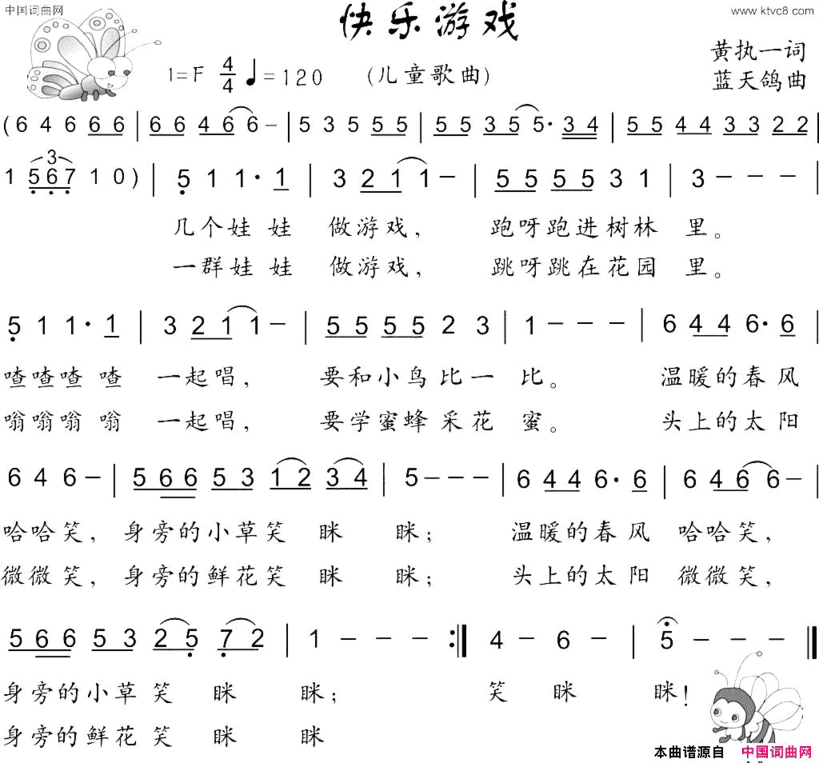 中国词曲网
快乐游戏
www.ktvc8.com
1=F 4/4 ♩=120 (儿童歌曲)
黄执一词
蓝天鸽曲
(6 4 6 6 6 | 6 6 4 6 6 - | 5 3 5 5 5 | 5 5 3 5 5· 3 4 | 5 5 4 4 3 3 2 2 |
1 3 5 6 7 1 0) | 5 1 1· 1 | 3 2 1 1 - | 5 5 5 5 3 1 | 3 - - - |
几个娃 娃 做游戏, 跑呀跑进树林 里。
一群娃 娃 做游戏, 跳呀跳在花园 里。
5 1 1· 1 | 3 2 1 1 - | 5 5 5 5 2 3 | 1 - - - | 6 4 4 6· 6 |
喳喳喳 喳 一起唱, 要和小鸟比一 比。 温暖的春风
嗡嗡嗡 嗡 一起唱, 要学蜜蜂采花 蜜。 头上的太阳
6 4 6 - | 5 6 6 5 3 1 2 3 4 | 5 - - - | 6 4 4 6· 6 | 6 4 6 6 - |
哈哈笑, 身旁的小草笑 眯 眯; 温暖的春风 哈哈笑,
微微笑, 身旁的鲜花笑 眯 眯; 头上的太阳 微微笑,
5 6 6 5 3 2 5 7 2 | 1 - - - :| 4 - 6 - | 5 - - - |
身旁的小草 笑 眯 眯; 笑 眯 眯!
身旁的鲜花 笑 眯 眯
本曲谱源自 中国词曲网